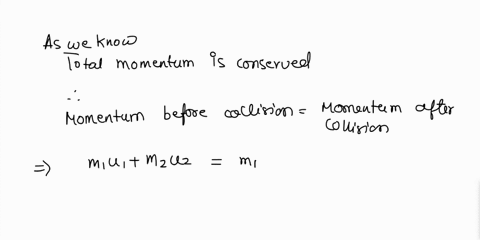 As we know
Total momentum is conserved
∴
Momentum before collision = Momentum after
collision
⇒ m₁u₁ + m₂u₂ = m₁